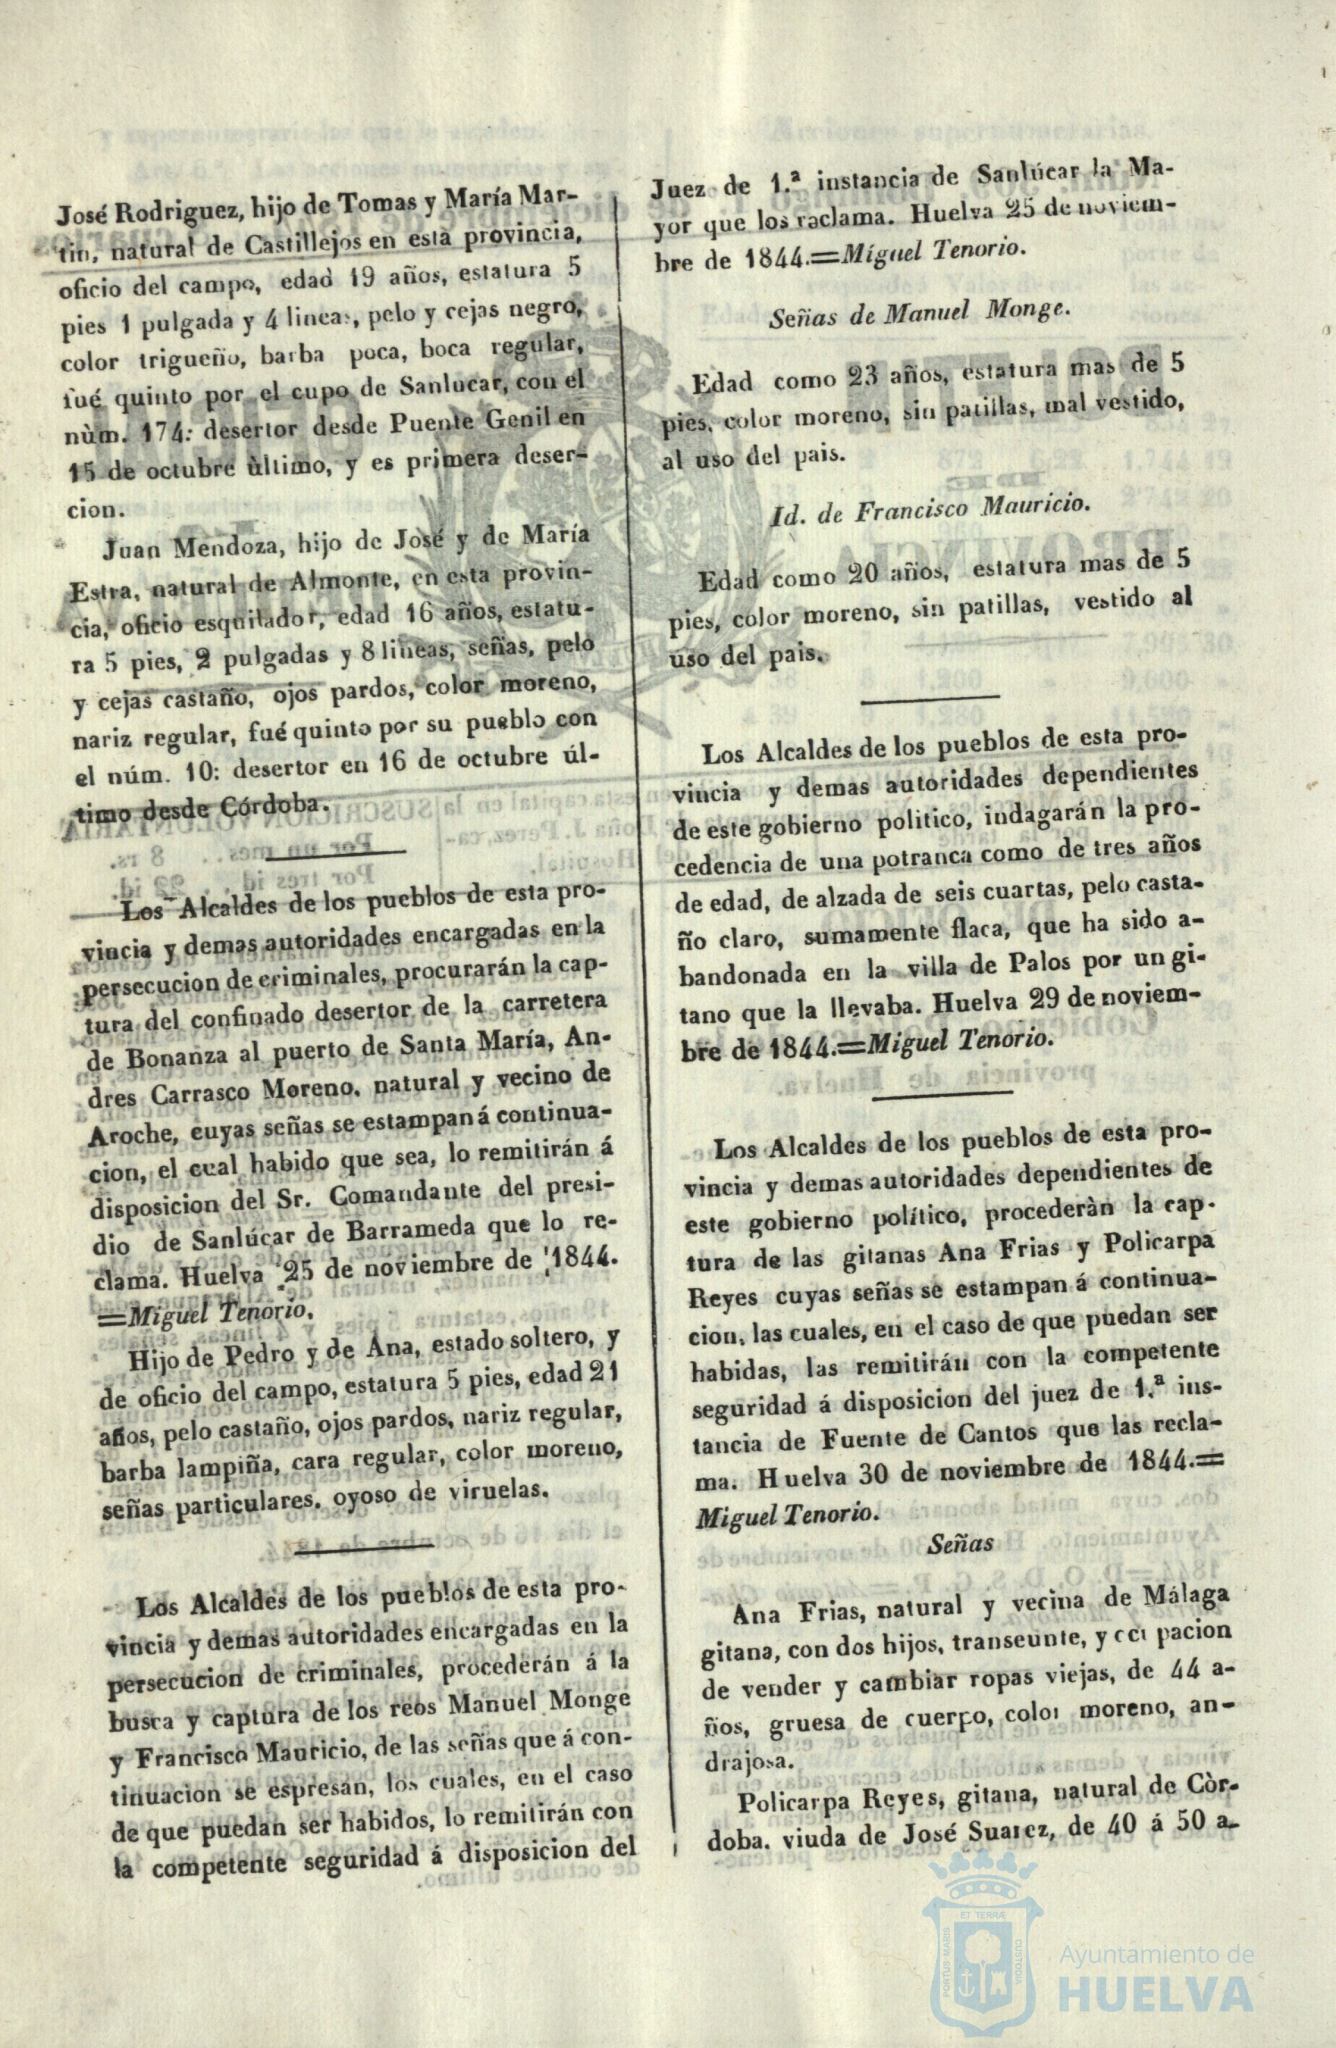 José Rodriguez, hijo de Tomas y María Mar-
tin, natural de Castillejos en esta provincia,
oficio del campo, edad 19 años, estatura 5
pies 1 pulgada y 4 lineas, pelo y cejas negro,
color trigueño, barba poca, boca regular,
fué quinto por el cupo de Sanlucar, con el
nùm. 174: desertor desde Puente Genil en
15 de octubre ùltimo, y es primera deser-
cion.
Juan Mendoza, hijo de José y de María
Estra, natural de Almonte, en esta provin-
cia, oficio esquilador, edad 16 años, estatu-
ra 5 pies, 2 pulgadas y 8 lineas, señas, pelo
y cejas castaño, ojos pardos, color moreno,
nariz regular, fué quinto por su pueblo con
el núm. 10: desertor en 16 de octubre úl-
timo desde Córdoba.
Los Alcaldes de los pueblos de esta pro-
vincia y demas autoridades encargadas en la
persecucion de criminales, procurarán la cap-
tura del confinado desertor de la carretera
de Bonanza al puerto de Santa María, An-
dres Carrasco Moreno, natural y vecino de
Aroche, cuyas señas se estampan á continua-
cion, el cual habido que sea, lo remitirán á
disposicion del Sr. Comandante del presi-
dio de Sanlúcar de Barrameda que lo re-
clama. Huelva 25 de noviembre de 1844.
=Miguel Tenorio.
Hijo de Pedro y de Ana, estado soltero, y
de oficio del campo, estatura 5 pies, edad 21
años, pelo castaño, ojos pardos, nariz regular,
barba lampiña, cara regular, color moreno,
señas particulares, oyoso de viruelas.
Los Alcaldes de los pueblos de esta pro-
vincia y demas autoridades encargadas en la
persecucion de criminales, procederán á la
busca y captura de los reos Manuel Monge
y Francisco Mauricio, de las señas que á con-
tinuacion se espresan, los cuales, en el caso
de que puedan ser habidos, lo remitirán con
la competente seguridad á disposicion del
Juez de 1.ª instancia de Sanlúcar la Ma-
yor que los reclama. Huelva 25 de noviem-
bre de 1844.=Miguel Tenorio.
Señas de Manuel Monge.
Edad como 23 años, estatura mas de 5
pies, color moreno, sin patillas, mal vestido,
al uso del pais.
Id. de Francisco Mauricio.
Edad como 20 años, estatura mas de 5
pies, color moreno, sin patillas, vestido al
uso del pais.
Los Alcaldes de los pueblos de esta pro-
vincia y demas autoridades dependientes
de este gobierno politico, indagarán la pro-
cedencia de una potranca como de tres años
de edad, de alzada de seis cuartas, pelo casta-
ño claro, sumamente flaca, que ha sido a-
bandonada en la villa de Palos por un gi-
tano que la llevaba. Huelva 29 de noviem-
bre de 1844.=Miguel Tenorio.
Los Alcaldes de los pueblos de esta pro-
vincia y demas autoridades dependientes de
este gobierno político, procederàn la cap-
tura de las gitanas Ana Frias y Policarpa
Reyes cuyas señas se estampan á continua-
cion, las cuales, en el caso de que puedan ser
habidas, las remitirán con la competente
seguridad á disposicion del juez de 1.ª ins-
tancia de Fuente de Cantos que las recla-
ma. Huelva 30 de noviembre de 1844.=
Miguel Tenorio.
Señas
Ana Frias, natural y vecina de Málaga
gitana, con dos hijos, transeunte, y ocupacion
de vender y cambiar ropas viejas, de 44 a-
ños, gruesa de cuerpo, color moreno, an-
drajosa.
Policarpa Reyes, gitana, natural de Còr-
doba, viuda de José Suarez, de 40 á 50 a-
ET TERRÆ
PORTUS MARIS
CUSTODIA
Ayuntamiento de
HUELVA